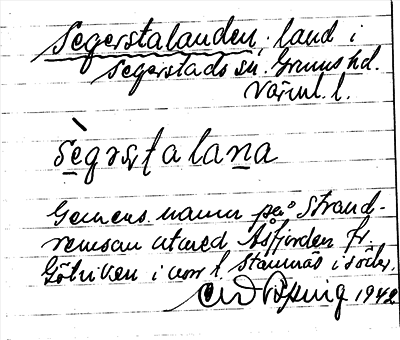 Segerstalanden, land i
Segerstads sn. Grums hd.
Värml. l.
sègerstalana
Gemens. namn på Strand-
remsan utmed Åsfjorden fr.
Göteviken i norr t. Stamnäs i söder.
1942